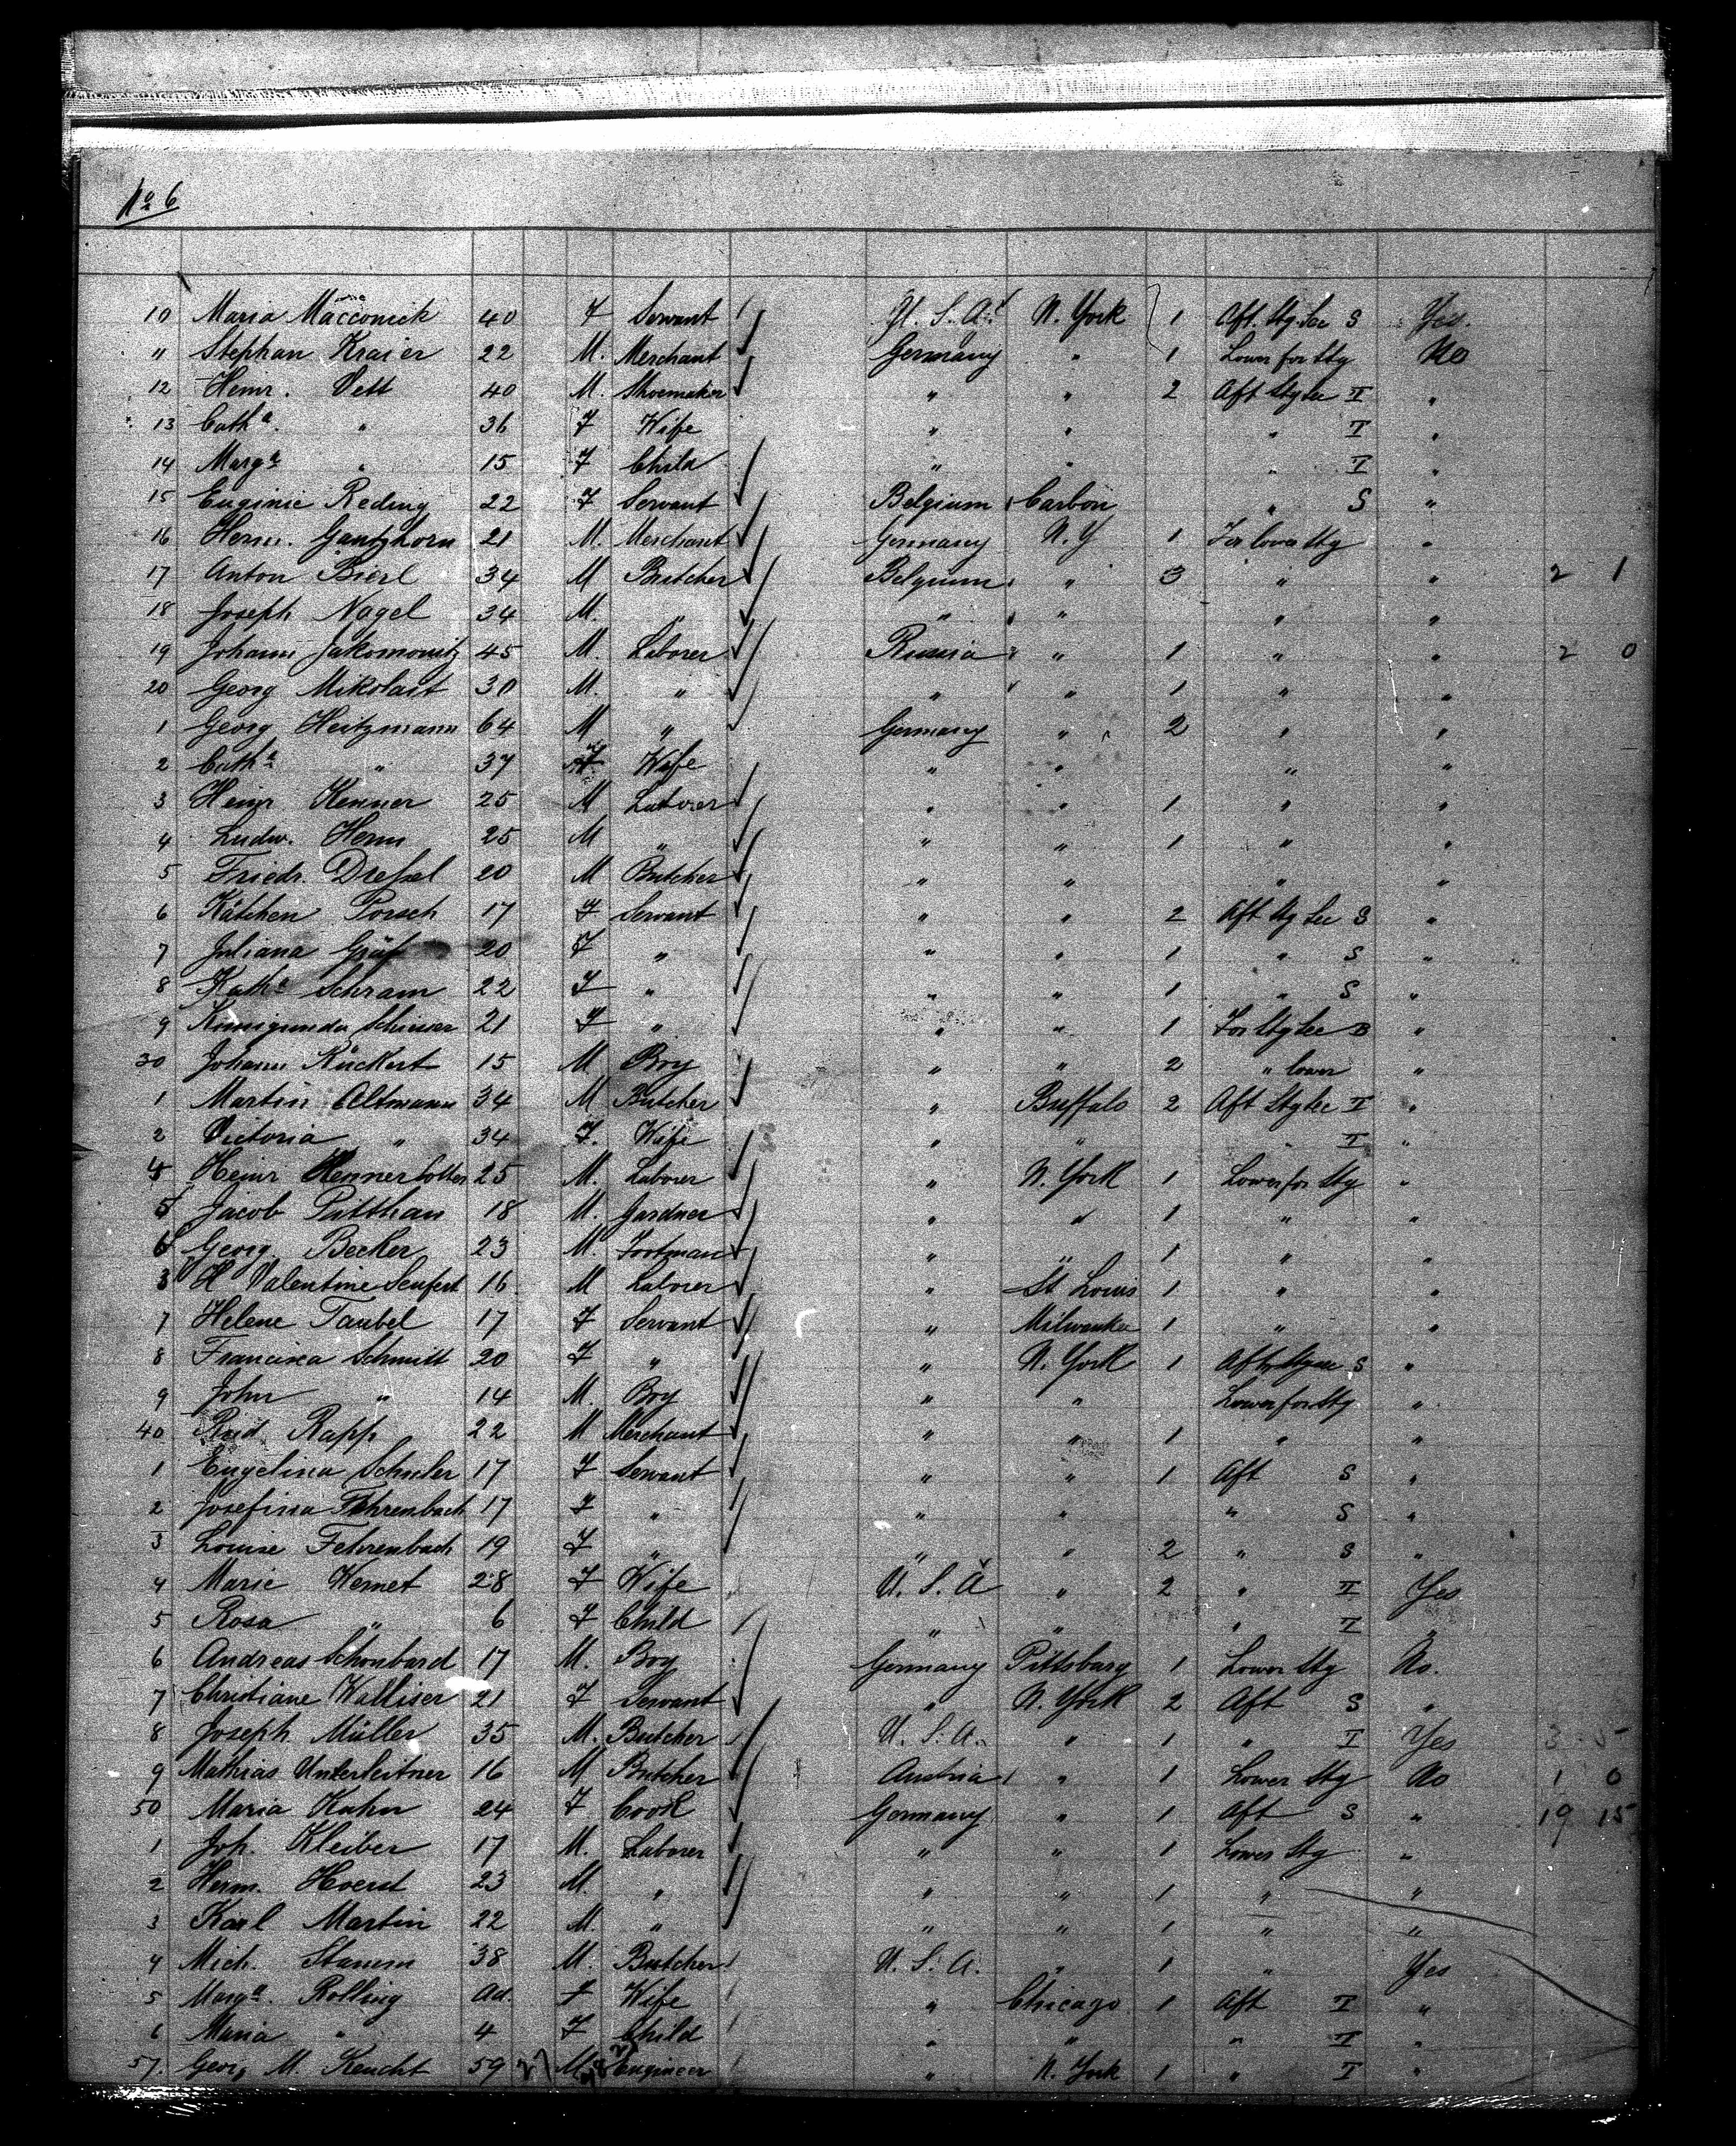 No 6
10 Maria Macconick 40 F Servant U. S. A. N. York 1 Aft. Stg Sec S Yes.
" Stephan Kraier 22 M. Merchant Germany " 1 Lower for Stg No
12 Heinr. Vett 40 M. Shoemaker " " 2 Aft Stg Sec T "
13 Cath a. " 36 F Wife " " " T "
14 Marg a " 15 F Child " " " T "
15 Euginie Reding 22 F Servant Belgium Carbon " S "
16 Herm. Gantzhorn 21 M. Merchant Germany N. Y 1 For lower Stg "
17 Anton Bierl 34 M Butcher Belgium " 3 " " 2 1
18 Joseph Nagel 34 M. " " " " "
19 Johann Jakomowitz 45 M. Laborer Russia " 1 " " 2 0
20 Georg Mikolait 30 M. " " " 1 " "
1 Georg Heitzmann 64 M " Germany " 2 " "
2 Cath a " 37 F Wife " " " "
3 Heinr Kenner 25 M Laborer " " 1 " "
4 Ludw. Herm 25 M " " " 1 " "
5 Friedr. Dressel 20 M Butcher " " " "
6 Kätchen Porsch 17 F Servant " " 2 Aft Stg Sec S "
7 Juliana Gräf 20 F " " " 1 " S "
8 Kath a Schram 22 F " " " 1 " S "
9 Kunigunda 21 F " " " 1 For Stg Sec B "
30 Johann Rückert 15 M Boy " " 2 " lower "
1 Martin Altmann 34 M Butcher " Buffalo 2 Aft Stg Sec T "
2 Victoria " 34 F. Wife " " " T "
4 Heinr 25 M. Laborer " N. York 1 Lower for Stg "
5 Jacob Pitthan 18 M. Gardner " " 1 " "
6 Georg Becker 23 M. Footman " " 1 " "
3 H Valentine Seufert 16 M Laborer " St Louis 1 " "
7 Helene Taubel 17 F Servant " Milwauke 1 " "
8 Francisca Schmitt 20 F " " N. York 1 Aft Stg Sec S "
9 John " 14 M. Boy " " Lower for Stg "
40 Rud. Rapp 22 M Merchant " " 1 " "
1 Engelina Schuler 17 F Servant " " 1 Aft S "
2 Josefina Fehrenbach 17 F " " " " S "
3 Louise Fehrenbach 19 F " " " 2 " S "
4 Marie Kemet 28 F Wife U. S. A " 2 " T Yes
5 Rosa " 6 F Child " " " T "
6 Andreas Schonbard 17 M. Boy Germany Pittsburg 1 Lower Stg No.
7 Christiane Walliser 21 F Servant " N. York 2 Aft S "
8 Joseph Müller 35 M. Butcher U. S. A. " 1 " T Yes 3 5
9 Mathias Unterleitner 16 M Butcher Austria " 1 Lower Stg No 1 0
50 Maria Kuhn 24 F Cook Germany " 1 Aft S " 19 15
1 Joh. Kleiber 17 M. Laborer " " 1 Lower Stg "
2 Herm. Hoerst 23 M. " " " 1 " "
3 Karl Martin 22 M. " " " 1 " "
4 Mich. Stamm 38 M. Butcher U. S. A. " 1 " Yes
5 Marg a. Rolling Ad. F Wife " Chicago 1 Aft T "
6 Maria " 4 F Child " " " T "
57. Georg M. Keucht 59 M. Engineer " N. York 1 " T "